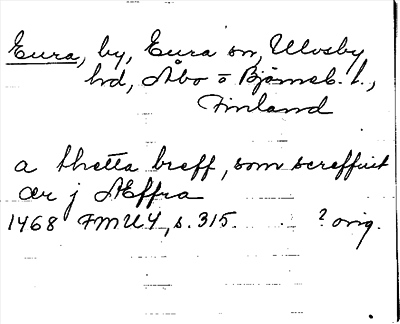 Eura, by, Eura sn, Ulvsby
hd, Åbo o Björneb. l.,
Finland
a thetta breff, som screffuit
ær j Æffra
1468 FMU 4, s. 315. ? orig.